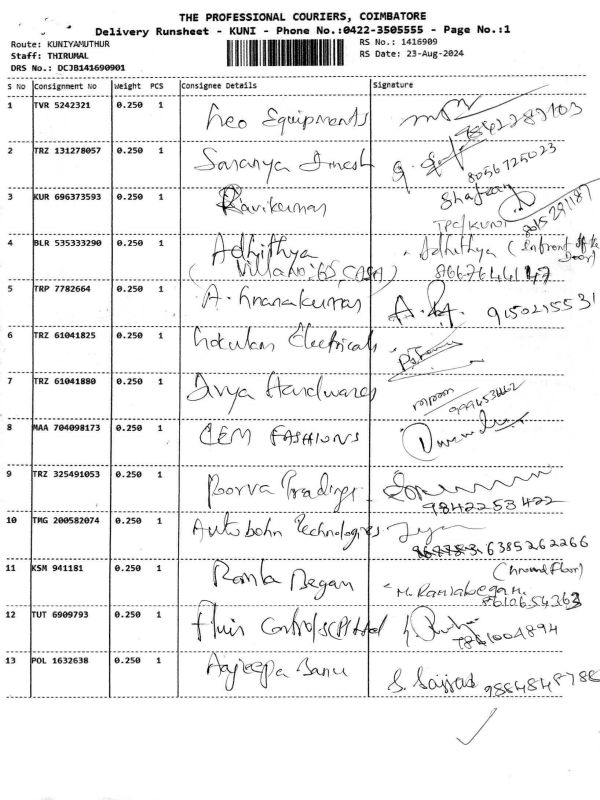 THE PROFESSIONAL COURIERS, COIMBATORE
Delivery Runsheet - KUNI - Phone No.:0422-3505555 - Page No.:1
Route: KUNIYAMUTHUR RS No.: 1416909
Staff: THIRUMAL RS Date: 23-Aug-2024
DRS No.: DCJB141690901
S No Consignment No Weight PCS Consignee Details Signature
1 TVR 5242321 0.250 1 Leo Equipments
2 TRZ 131278057 0.250 1 Saranya Dinesh 8056725023
3 KUR 696373593 0.250 1 Ravikumar
4 BLR 535333290 0.250 1 Adhithya Adhithya (Infront of the Door)
(Villa No: 65, CASA)
5 TRP 7782664 0.250 1 A. Gnanakumar 9150215531
6 TRZ 61041825 0.250 1 Gokulam Electricals
7 TRZ 61041880 0.250 1 Divya Hardwares
8 MAA 704098173 0.250 1 FASHIONS
9 TRZ 325491053 0.250 1 Poorva Tradings
9842253422
10 TMG 200582074 0.250 1 Autobahn Technologies
6385262266
11 KSM 941181 0.250 1 Ramla Began (Ground Floor)
8610654363
12 TUT 6909793 0.250 1 Control
7881004894
13 POL 1632638 0.250 1 Aajeepa Banu S. Sajjad